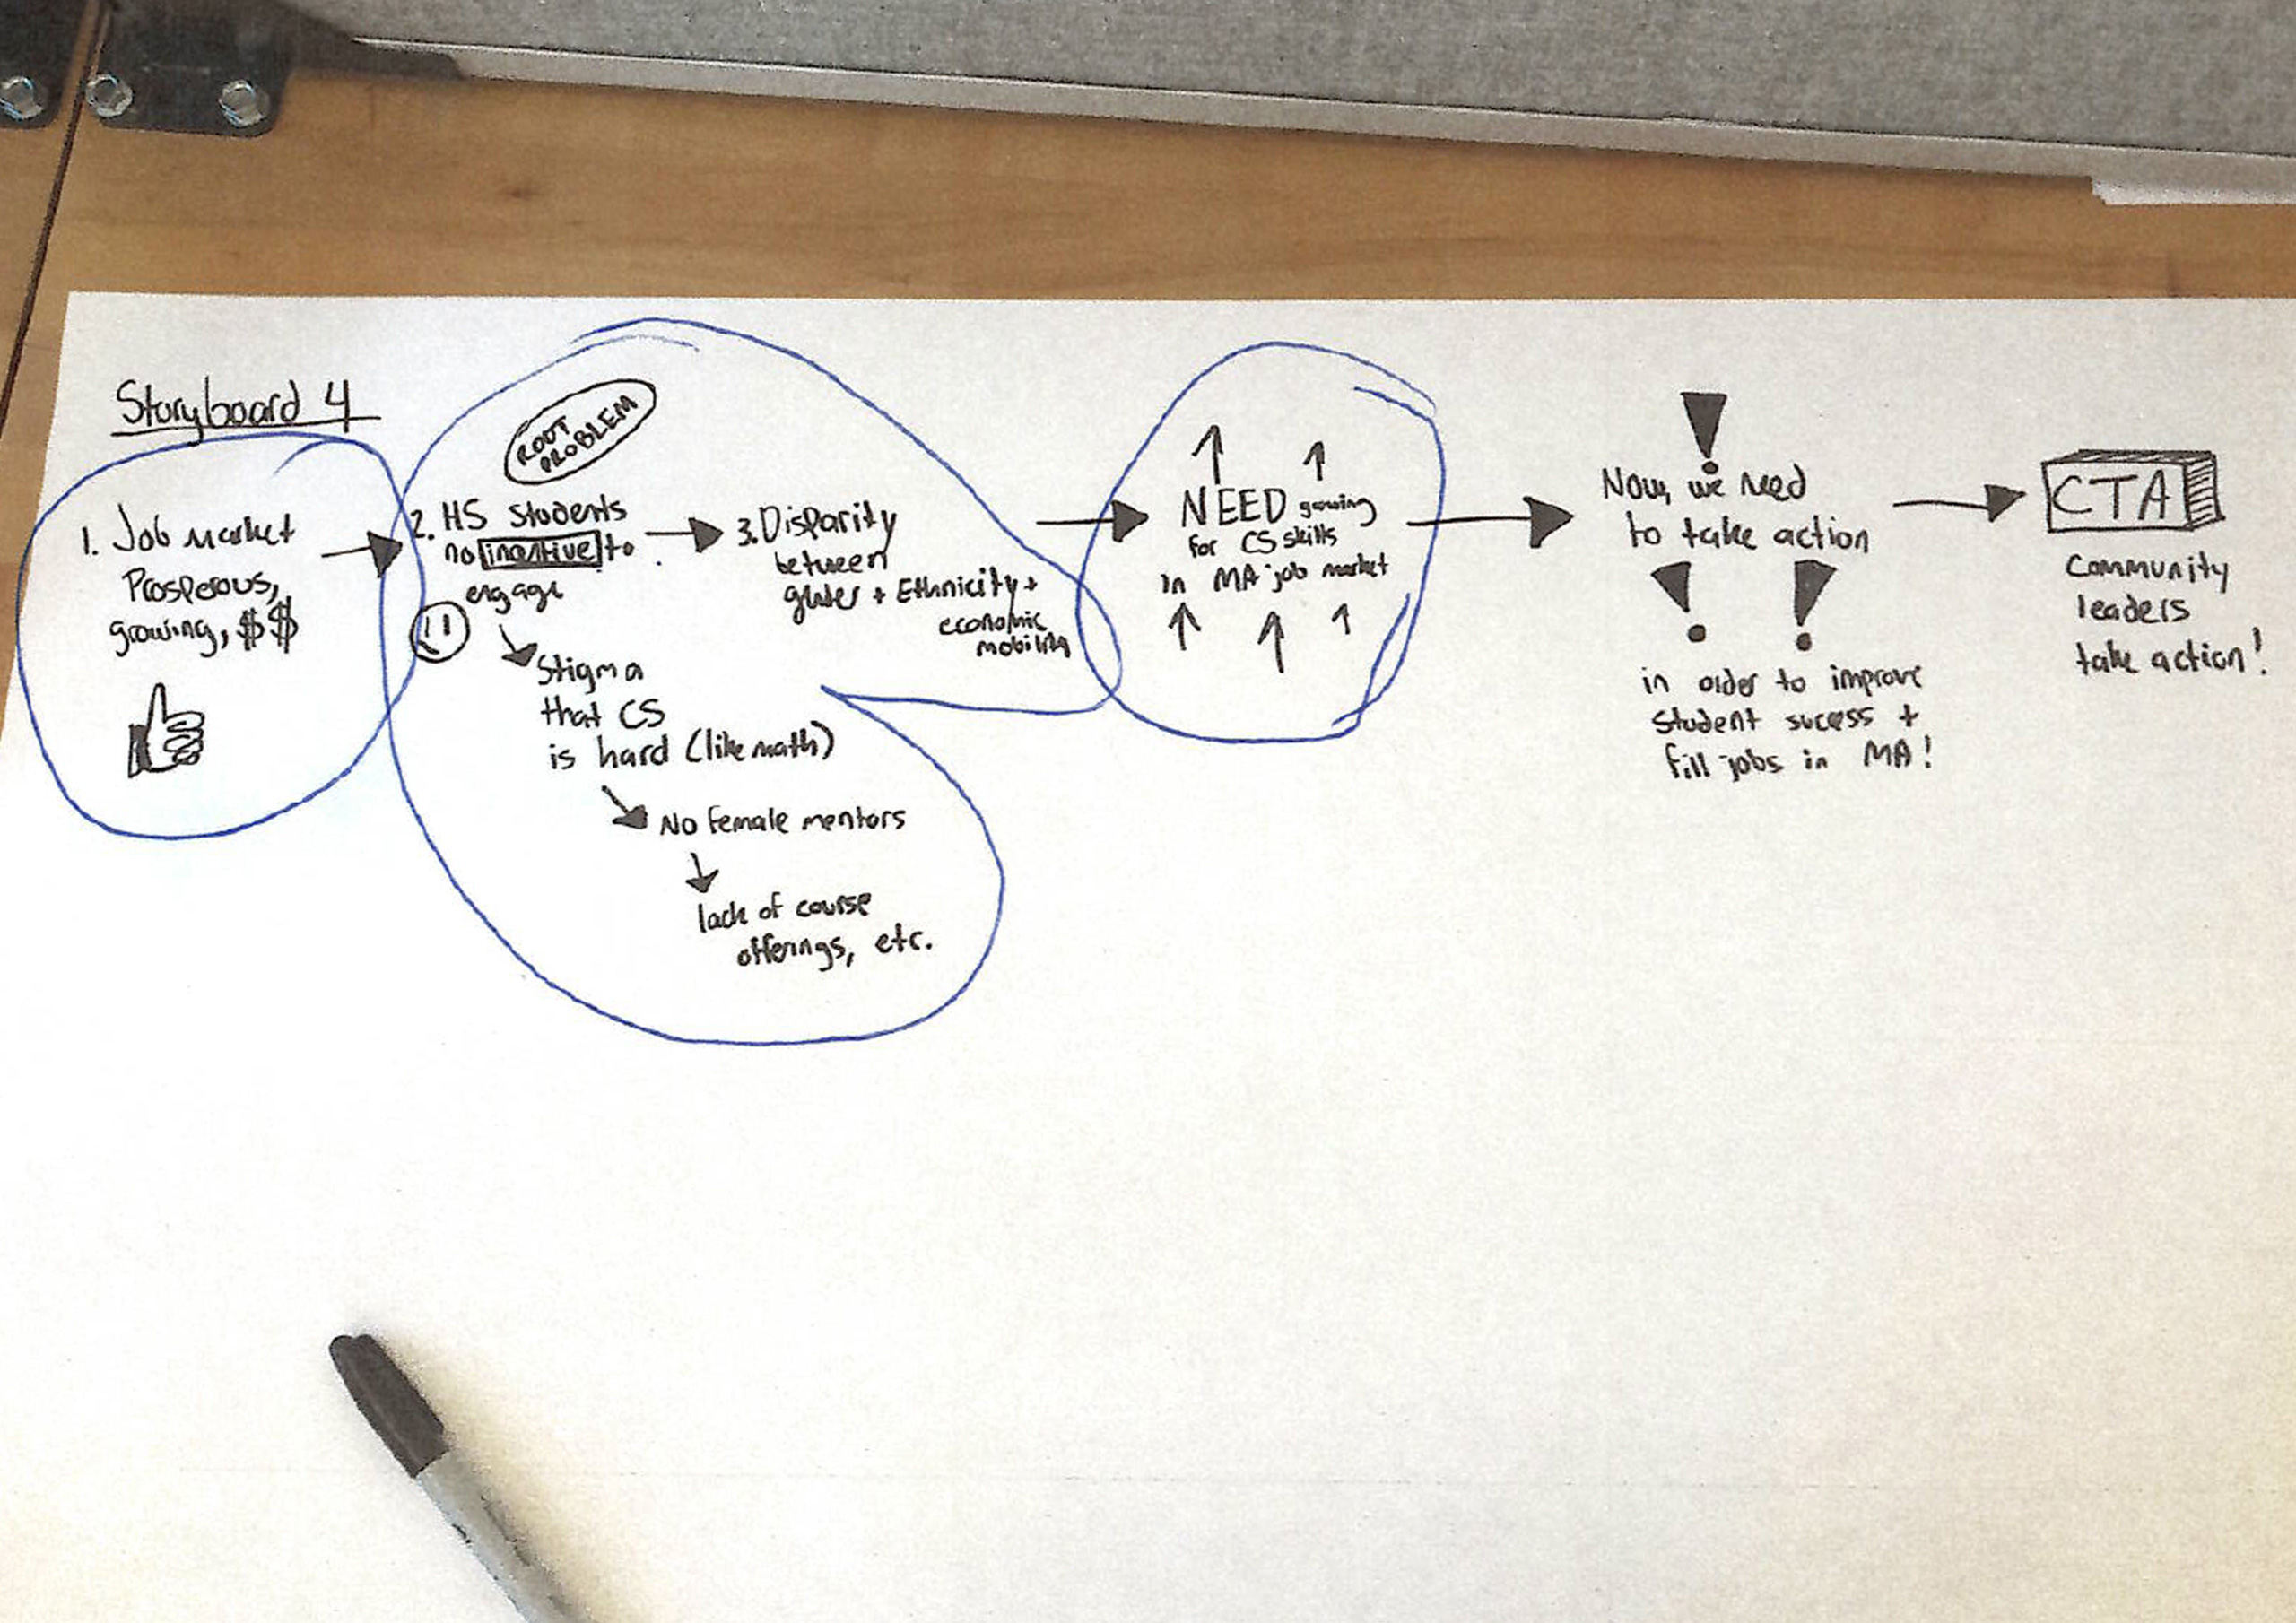 Storyboard 4
1. Job market
Prosperous,
growing, $$
ROOT
PROBLEM
2. HS students
no incentive to
engage
Stigma
that CS
is hard (like math)
No female mentors
lack of course
offerings, etc.
3. Disparity
between
+ Ethnicity +
economic
mobility
NEED growing
for CS skills
in MA job market
Now, we need
to take action
in order to improve
student sucess +
fill jobs in MA!
CTA
Community
leaders
take action!